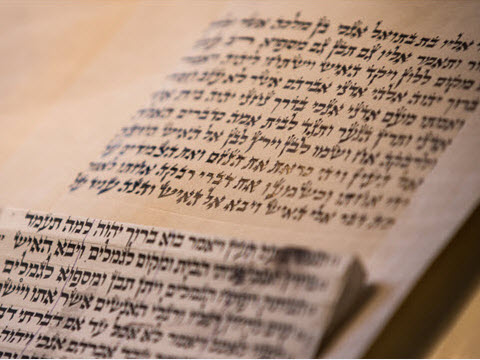 אליו בת בתואל אנכי בן מלכה אשר
ותאמר אליו גם תבן גם מספוא רב
מקום ללון ויקד האיש וישתחו ליהוה
ברוך יהוה אלהי אדני אברהם אשר לא עזב
ואמתו מעם אדני אנכי בדרך נחני יהוה בית
ותרץ הנער ותגד לבית אמה כדברים האלה
ולרבקה אח ושמו לבן וירץ לבן אל האיש
העין ויהי כראת את הנזם ואת הצמדים על
אחתו וכשמעו את דברי רבקה אחתו לאמר
דבר אלי האיש ויבא אל האיש והנה עמד על
ויאמר בוא ברוך יהוה למה תעמד
הבית ומקום לגמלים ויבא האיש
הגמלים ויתן תבן ומספוא לגמלים
ורגלי האנשים אשר אתו ויישם
ויאמר לא אכל עד אם דברתי
אברהם אנכי ויהוה